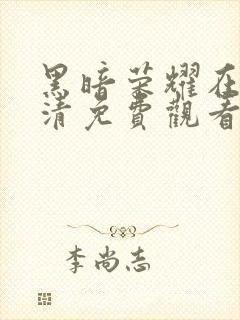 黑暗荣耀在
清免費觀看
李尚志